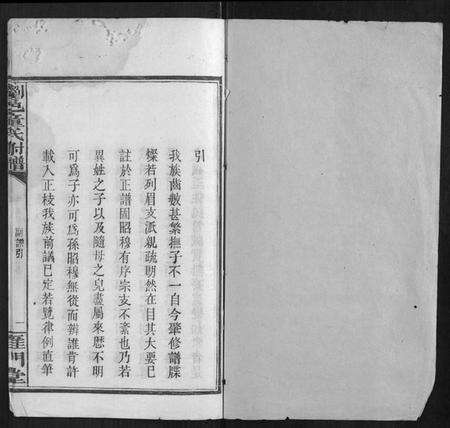 引
我族齒數甚繁撫子不一自今肇修譜牒
燦若列眉支派親疏朗然在目其大要已
註於正譜固昭穆有序宗支不紊也乃若
異姓之子以及隨母之兒盡屬來歷不明
可為子亦可為孫昭穆無從而辨誰肯許
載入正枝我族前議已定若覽律例直筆
瀏邑童氏附譜
譜引
一
雁門堂